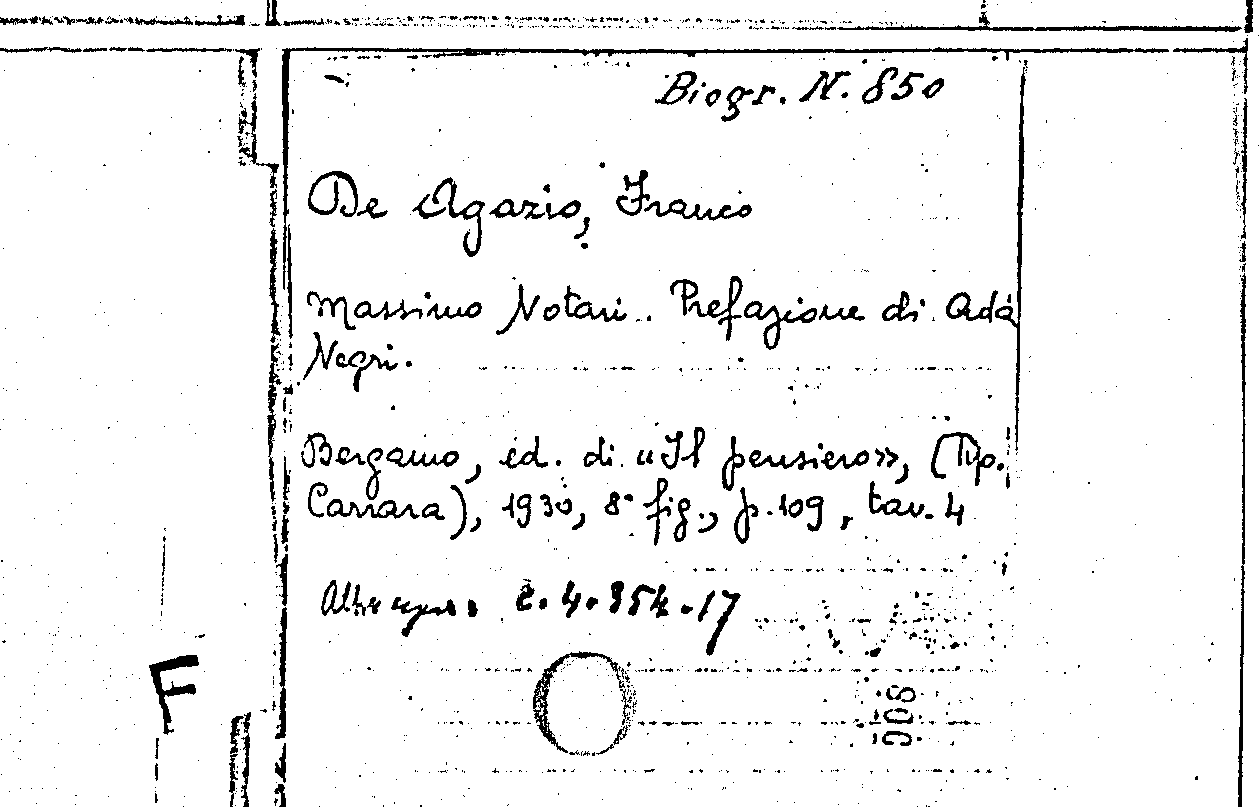 Biogr. N. 850
De Agazio, Franco
Massimo Notari. Prefazione di Ada
Negri.
Bergamo, ed. di "Il pensiero", (Tip.
Carrara), 1930, 8° fig., p. 109, tav. 4
Altra copia: C. 4. 354. 17
F